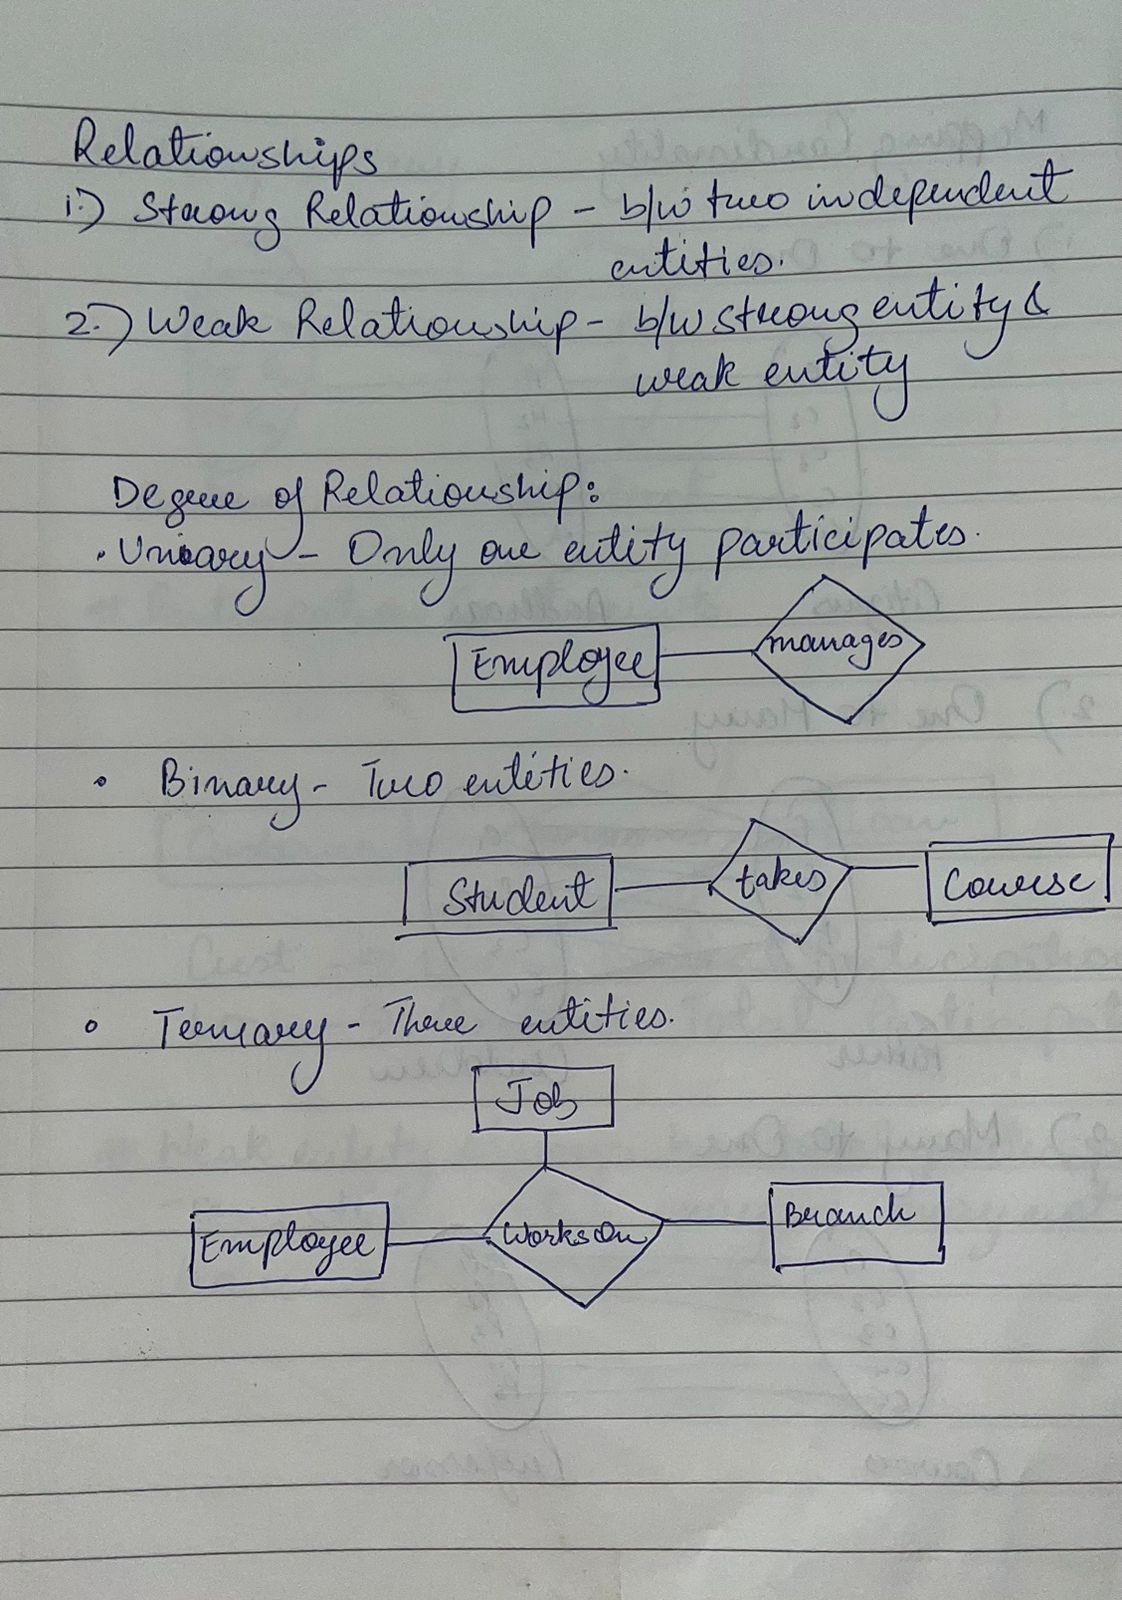 Relationships
1.) Strong Relationship - b/w two independent
entities.
2.) Weak Relationship - b/w strong entity &
weak entity
Degree of Relationship:
• Unary - Only one entity participates.
Employee manages
• Binary - Two entities.
Student takes Course
• Ternary - Three entities.
Job
Employee Works on Branch